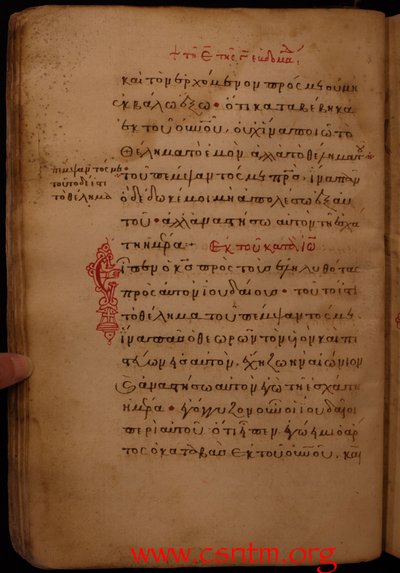 τῇ ε τῆς ϛ ἑβδομάδ
καὶ τὸν ἐρχόμενον πρός με οὐ μὴ
ἐκβάλω ἔξω· ὅτι καταβέβηκα
ἐκ τοῦ οὐνοῦ, οὐχ ἵνα ποιῶ τὸ
θέλημα τὸ ἐμὸν ἀλλὰ τὸ θέλημα
τοῦ πέμψαντός με πρς, ἵνα πᾶν
ὃ δέδωκέ μοι μὴ ἀπολέσω ἐξ αὐ
τοῦ· ἀλλὰ ἀναστήσω αὐτὸν τῇ ἐσχά
τη ἡμέρα. Ἐκ τοῦ κατὰ Ἰω
Εἶπεν ὁ κς πρὸς τοὺς ἐληλυθότας
πρὸς αὐτὸν ἰουδαίους· τοῦτό ἐστι
τὸ θέλημα τοῦ πέμψαντός με,
ἵνα πᾶς ὁ θεωρῶν τὸν υἱὸν καὶ πι
στεύων εἰς αὐτὸν, ἔχη ζωὴν αἰώνιον
καὶ ἀναστήσω αὐτὸν ἐγὼ τῇ ἐσχάτη
ἡμέρα· ἐγόγγυζον οὖν οἱ ἰουδαῖοι
περὶ αὐτοῦ ὅτι εἶπεν ἐγώ εἰμι ὁ ἄρ
τος ὁ καταβὰς ἐκ τοῦ οὐνοῦ, καὶ
πέμψαντός με
τοῦτο δέ ἐστι
τὸ θέλημα
www.csntm.org